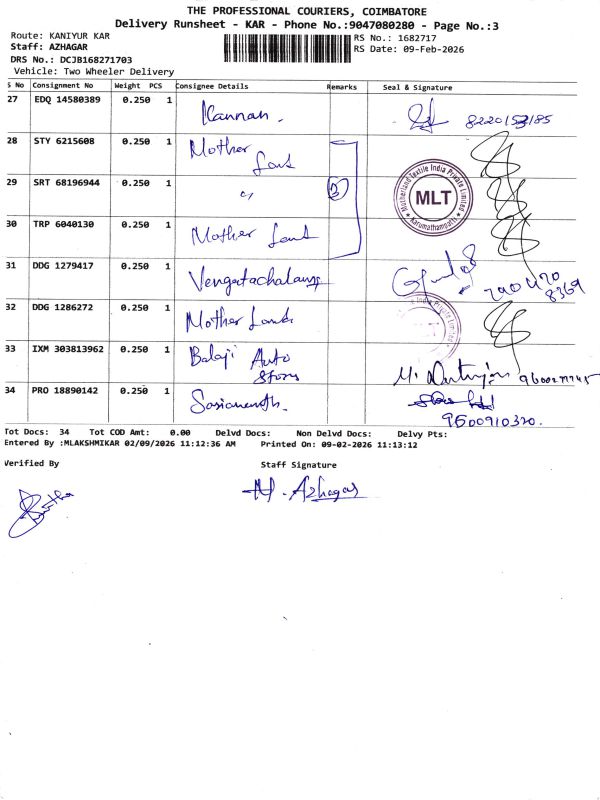 THE PROFESSIONAL COURIERS, COIMBATORE
Delivery Runsheet - KAR - Phone No.:9047080280 - Page No.:3
Route: KANIYUR KAR
RS No.: 1682717
Staff: AZHAGAR
RS Date: 09-Feb-2026
DRS No.: DCJB168271703
Vehicle: Two Wheeler Delivery
S No Consignment No Weight PCS Consignee Details Remarks Seal & Signature
27 EDQ 14580389 0.250 1 Kannan.
28 STY 6215608 0.250 1 Mother Land
29 SRT 68196944 0.250 1 " 3
Motherland Textile India Private Limited
MLT
Karumathampatti
30 TRP 6040130 0.250 1 Mother Land
31 DDG 1279417 0.250 1 Vengatachalam
790 4170
8369
32 DDG 1286272 0.250 1 Mother Land
MLT
33 IXM 303813962 0.250 1 Balaji Auto
Stores
34 PRO 18890142 0.250 1
9600910320.
Tot Docs: 34 Tot COD Amt: 0.00 Delvd Docs: Non Delvd Docs: Delvy Pts:
Entered By :MLAKSHMIKAR 02/09/2026 11:12:36 AM Printed On: 09-02-2026 11:13:12
Verified By Staff Signature
Azhagar